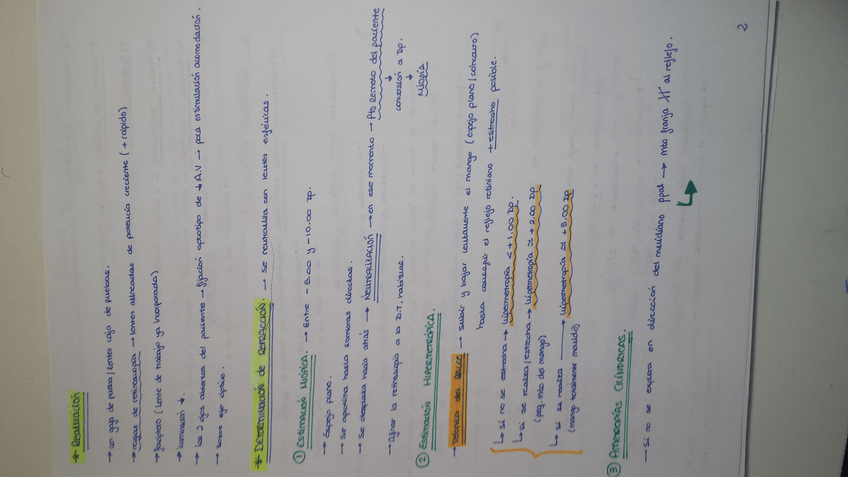 * Realización
→ con gafa de prueba/lentes caja de pruebas.
→ reglas de retinoscopía → lentes alineadas de potencia creciente (+ rápido)
→ foróptero (lente de trabajo ya incorporada)
→ iluminación ↓.
→ los 2 ojos abiertos del paciente → fijación optotipo de ↓ A.V → para estimulación acomodación.
→ sobre eje óptico.
* DETERMINACIÓN DE REFRACCIÓN. → se neutraliza con lentes esféricas.
① ESTIMACIÓN MIÓPICA. → Entre -5.00 y -10.00 Dp.
→ Espejo plano.
→ Se aproxima hasta sombras directas.
→ Se desplaza hacia atrás → NEUTRALIZACIÓN → en ese momento → Pto Remoto del paciente
↓
conversión a Dp.
↓
Miopía
→ afinar la retinoscopía a la D.T. habitual.
② ESTIMACIÓN HIPERMETRÓPICA.
→ Técnica del realce → Subir y bajar lentamente el mango (espejo plano/cóncavo)
hasta conseguir el reflejo retiniano + estrecho posible.
↳ si no se estrecha → Hipermetropía < +1.00 Dp.
↳ si se realza/estrecha → Hipermetropía ≃ +2.00 Dp
(peq. mto del mango)
↳ si se realza → Hipermetropía ≃ +5.00 Dp
(mango totalmente movido)
③ AMETROPÍAS CILÍNDRICAS.
→ Si no se explora en dirección del meridiano ppal → mto franja al reflejo.
2